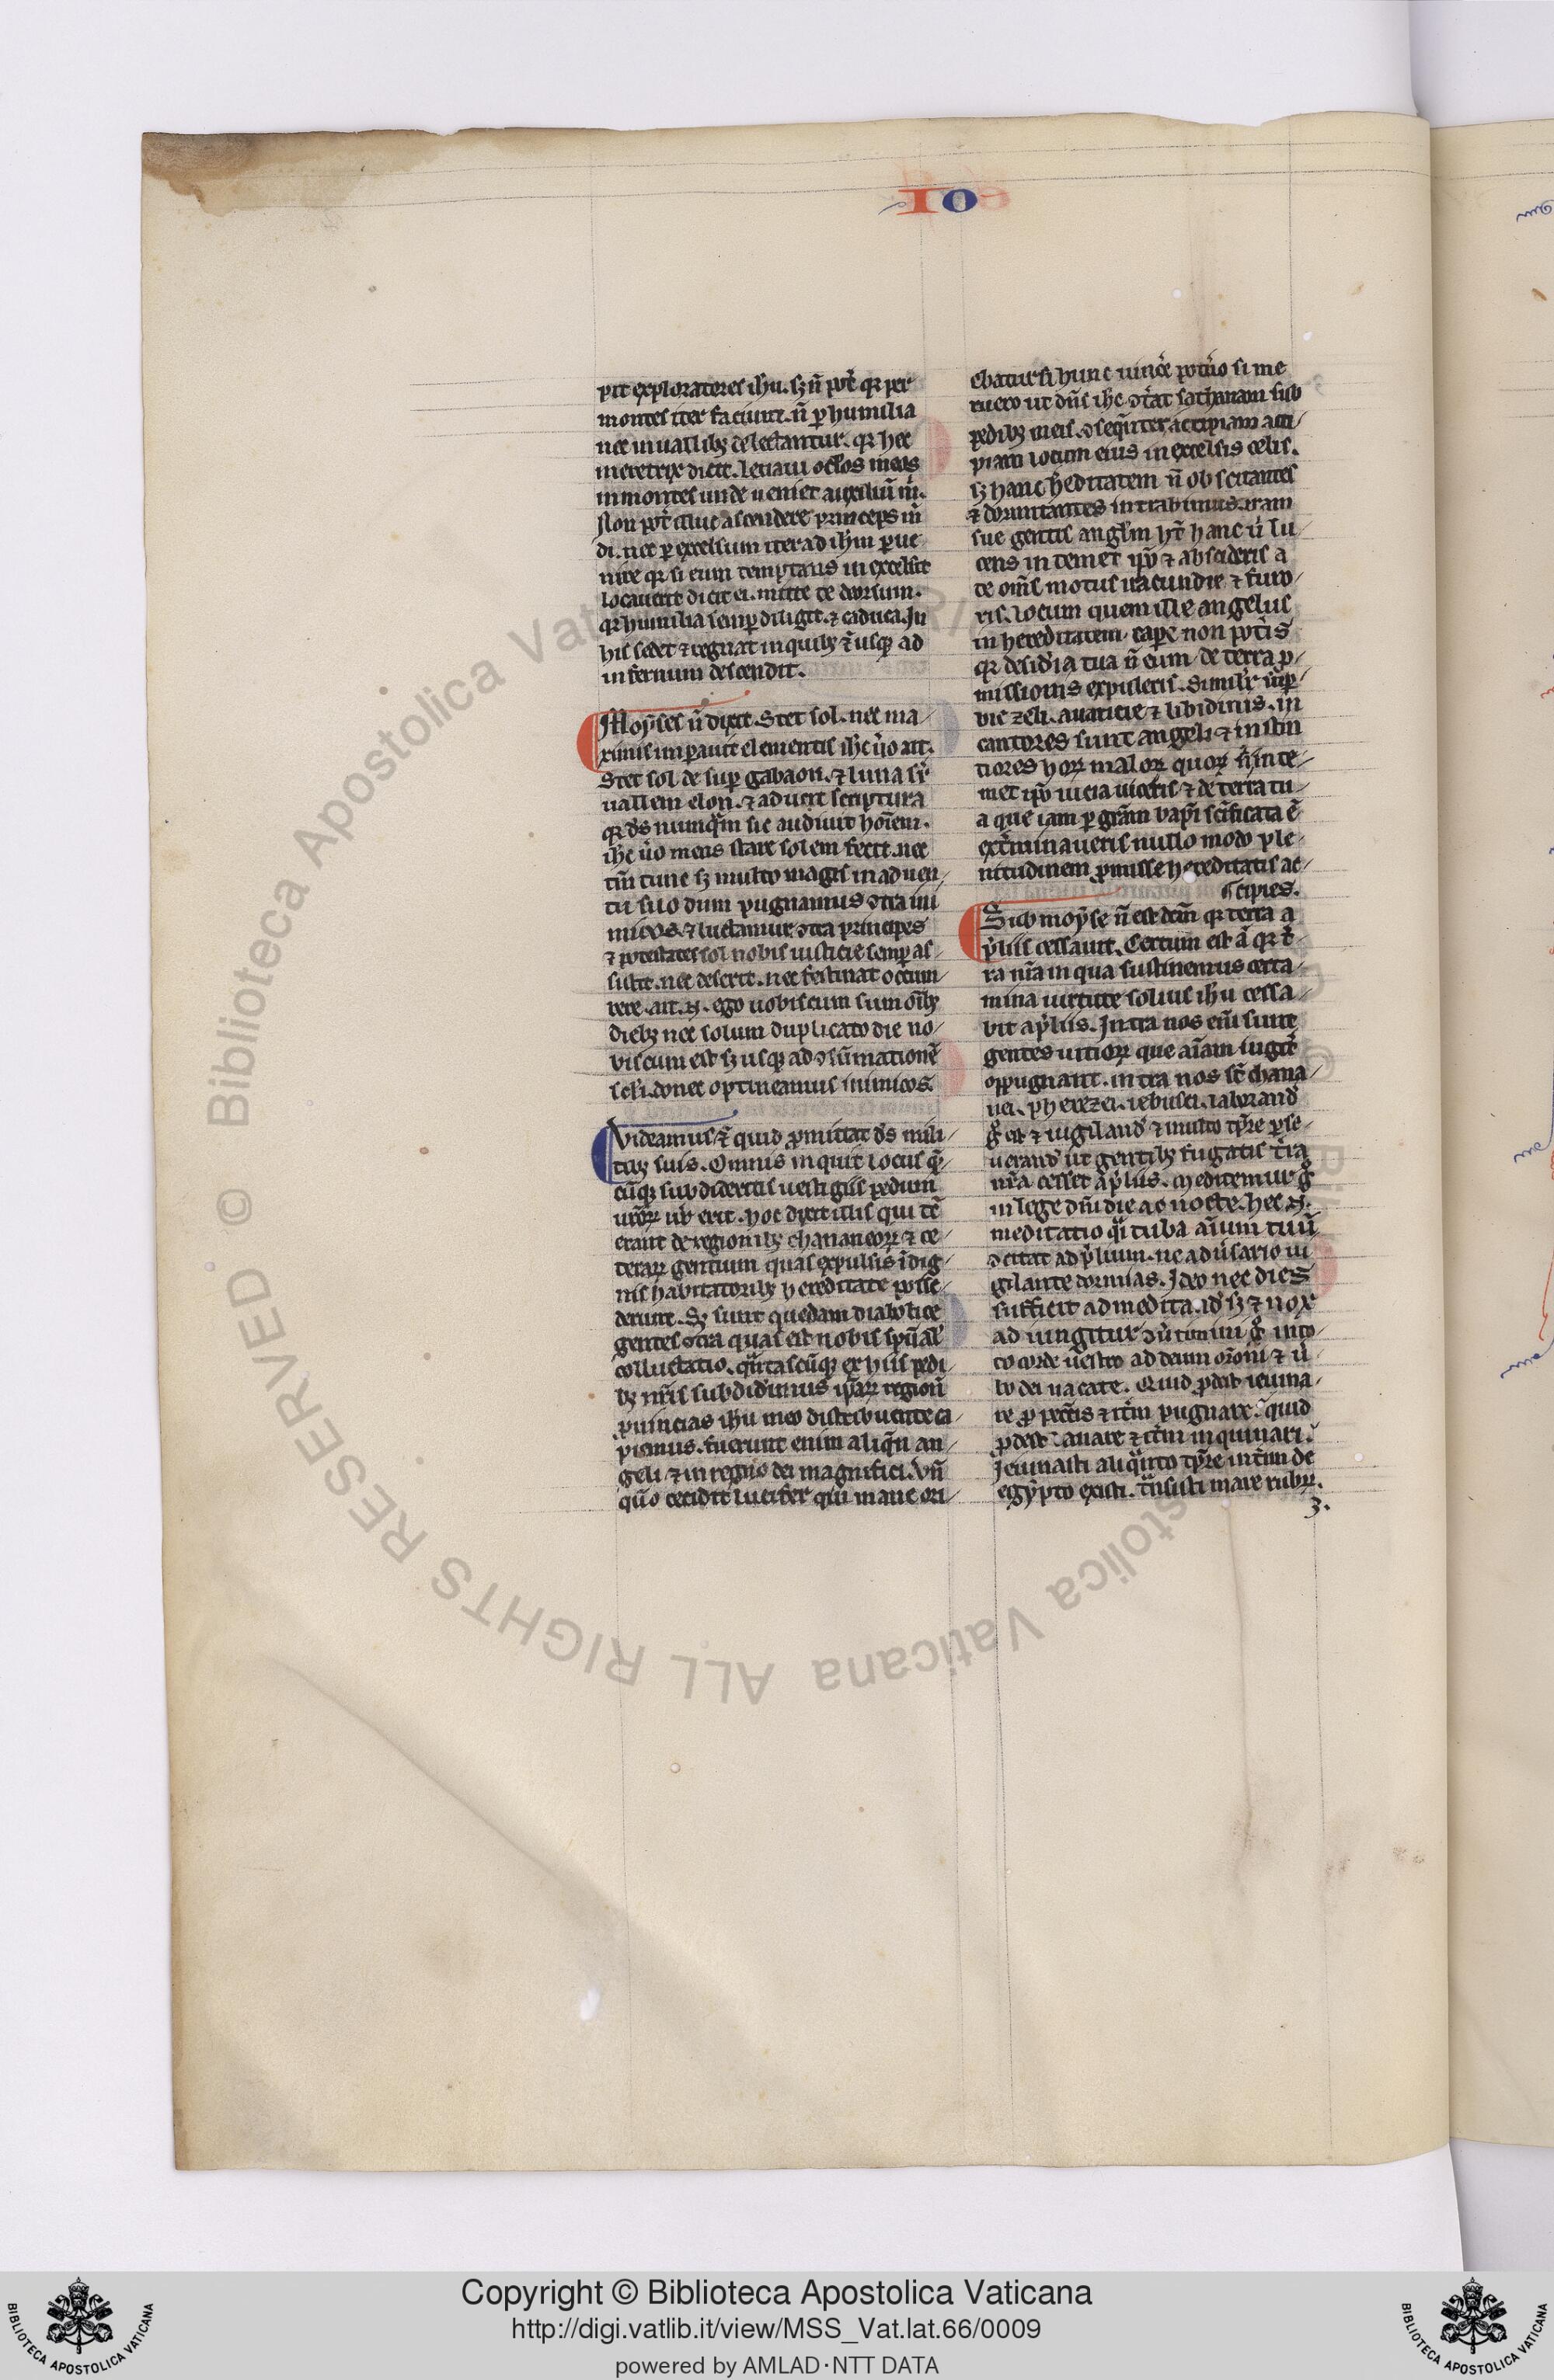 IO
pit exploratores ihu. sꝫ ñ pot̃ qꝛ per
montes iter faciunt. ñ ꝑ humilia
nec in uallibꝫ delectantur. qꝛ hec
meretrix dicit. leuaui oc̃los meos
in montes unde ueniet auxiliũ m̃.
Non pot̃ illuc ascendere princeps mũ
di. nec ꝑ excelsum iter ad ihm ꝑue
nire qꝛ si eum temptans in excelsis
locauerit dicit ei. mitte te deorsum.
qꝛ humilia semꝑ diligit. ⁊ caduca. In
his sedet ⁊ regnat in quibꝫ ⁊̃ usqꝫ ad
infernum descendit.
Moẏses ñ dixit. Stet sol. nec ma
ximis imperauit elementis ihc ũo ait.
Stet sol de suꝑ gabaon. ⁊ luna sr̃
uallem elon. ⁊ adicit scriptura
qꝛ ds̃ nunqm̃ sic audiuit hoĩem.
ihc ũo meus stare solem fecit. nec
tm̃ tunc sꝫ multo magis in aduen
tu suo dum pugnamus ↄtra ini
micos. ⁊ luctamur ↄtra principes
⁊ potestates sol nobis iusticie semꝑ as
sistit. nec deserit. nec festinat occum
bere. ait. n̄. ego uobiscum sum oĩbꝫ
diebꝫ nec solum duplicato die no
biscum est sꝫ usqꝫ ad ↄsũmationẽ
sc̃li. donec optineamus inimicos.
Videamus ⁊̃ quid ꝓmittat ds̃ mili
tibꝫ suis. Omnis inquit locus q̃
cũqꝫ subdideritis uestigiis pedum
ur̃oꝝ ub̃ erit. hoc dixit illis qui tc̃
erant de regionibꝫ chananeoꝝ ⁊ ce
teraꝝ gentium quas expulsis ĩdig
nis habitatoribꝫ hereditate posse
derunt. Sꝫ sunt quedam diabolice
gentes ↄtra quas est nobis spũal̃
colluctatio. qũtascũqꝫ ex hiis pedi
bꝫ nr̃is subdidĩmus ip̃aꝝ regionũ
ꝓuincias ihu meo distribuente ca
piemus. fuerunt enim aliqñ an
geli ⁊ in regno dei magnifici. Vñ
quo cecidit lucifer qui mane ori
ebatur si hunc uinc̃e potũo si me
ruero ut dñs ihc ↄt̃at sathanam sub
pedibꝫ meis. ↄseqũter accipiam acci
piam locum eius in excelsis celis.
sꝫ hanc h̃editatem ñ oscitantes
⁊ dormitantes intrabimus. iram
sue gentis anglm̃ hr̃e hanc ũ lu
cens in temet ip̃o ⁊ abscideris a
te om̃s motus iracundie ⁊ furo
ris. locum quem ille angelus
in hereditatem capẽ non potis
qꝛ desidia tua ñ eum de terra ꝓ
missionis expuleris. Similr̃ suꝑ
bie zeli. auaricie ⁊ libidinis. in
centores sunt angeli ⁊ instin
ctores hoꝝ maloꝝ quos ñ in te
met ip̃o iu ⁊ ea uiceris ⁊ de terra tu
a que iam ꝑ grãm bapt̃i scĩficata ẽ
ext̃minaueris nullo modo ple
nitudinem ꝓmisse hereditatis ac
cipies.
Sub moẏse ñ est dc̃m qꝛ terra a
p̃liis cessauit. Certum est ã qꝛ t̃
ra nr̃a in qua sustinemus certa
mina uirtute solius ihu cessa
bit a p̃liis. Intra nos em̃ sunt
gentes uitioꝝ que aĩam iugit̃
oppugnant. intra nos st̃ chana
nei. pherezei. iebusei. laborand̃
g̃ est ⁊ uigiland̃ ⁊ multo tp̃re ꝑse
uerand̃ ut gentibꝫ fugatis t̃ra
nr̃a cesset a p̃liis. Meditemur g̃
in lege dñi die ac nocte. hec n̄.
meditatio q̃i tuba aĩum tuũ
ↄcitat ad p̃lium. ne adũsario ui
gilante dormias. Ideo nec dies
sufficit ad medita. id̃ sꝫ ⁊ nox
adiungitur ↄũtimini g̃ in to
to corde uestro ad deum or̃oni ⁊ ũ
bo dei uacate. Quid ꝓdest ieiuna
re ꝓ pecc̃is ⁊ it̃m pugnare. quid
ꝓdest lauare ⁊ it̃m inquinari.
Ieiunasti aliq̃nto tp̃re in t̃m de
egẏpto existi. t̃nsisti mare rubꝝ.
3.
Copyright © Biblioteca Apostolica Vaticana
http://digi.vatlib.it/view/MSS_Vat.lat.66/0009
powered by AMLAD·NTT DATA
BIBLIOTECA APOSTOLICA VATICANA
BIBLIOTECA APOSTOLICA VATICANA
Biblioteca Apostolica Vaticana ALL RIGHTS RESERVED ©